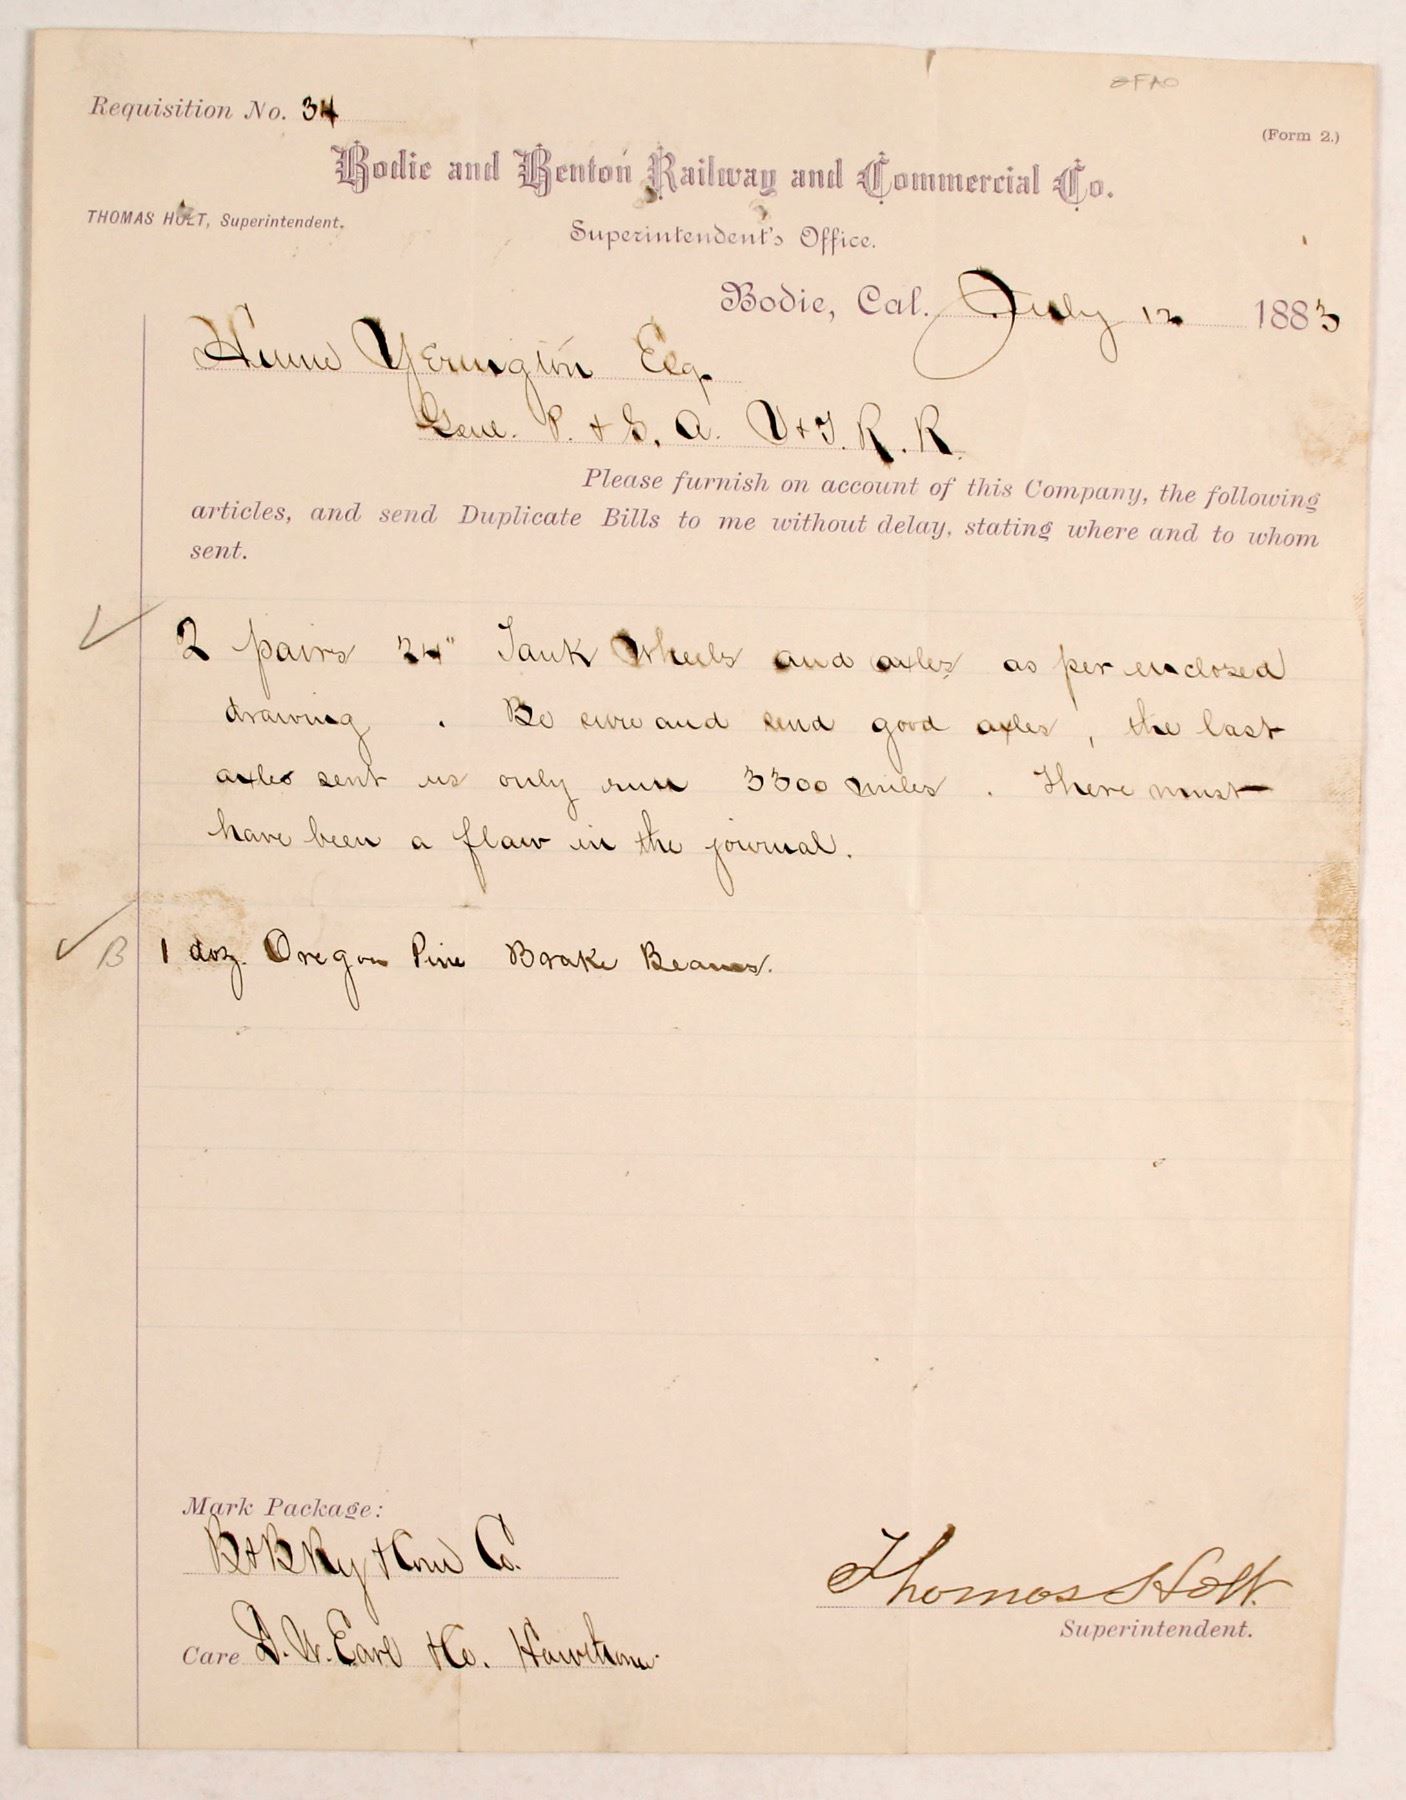 Requisition No. 34
(Form 2.)
Bodie and Benton Railway and Commercial Co.
THOMAS HOLT, Superintendent.
Superintendent's Office.
Bodie, Cal. July 12 1883
Hume Yerington Esq.
Genl. P. & F. A. V & T. R. R.
Please furnish on account of this Company, the following
articles, and send Duplicate Bills to me without delay, stating where and to whom
sent.
2 pairs 24" Tank Wheels and axles as per enclosed
drawing . Be sure and send good axles , the last
axles sent us only run 3300 miles . There must
have been a flaw in the journal.
B 1 doz. Oregon Pine Brake Beams.
Mark Package:
B & B Ry & Com Co.
Thomas Holt.
Superintendent.
Care D. W. Earl & Co. Hawthorne